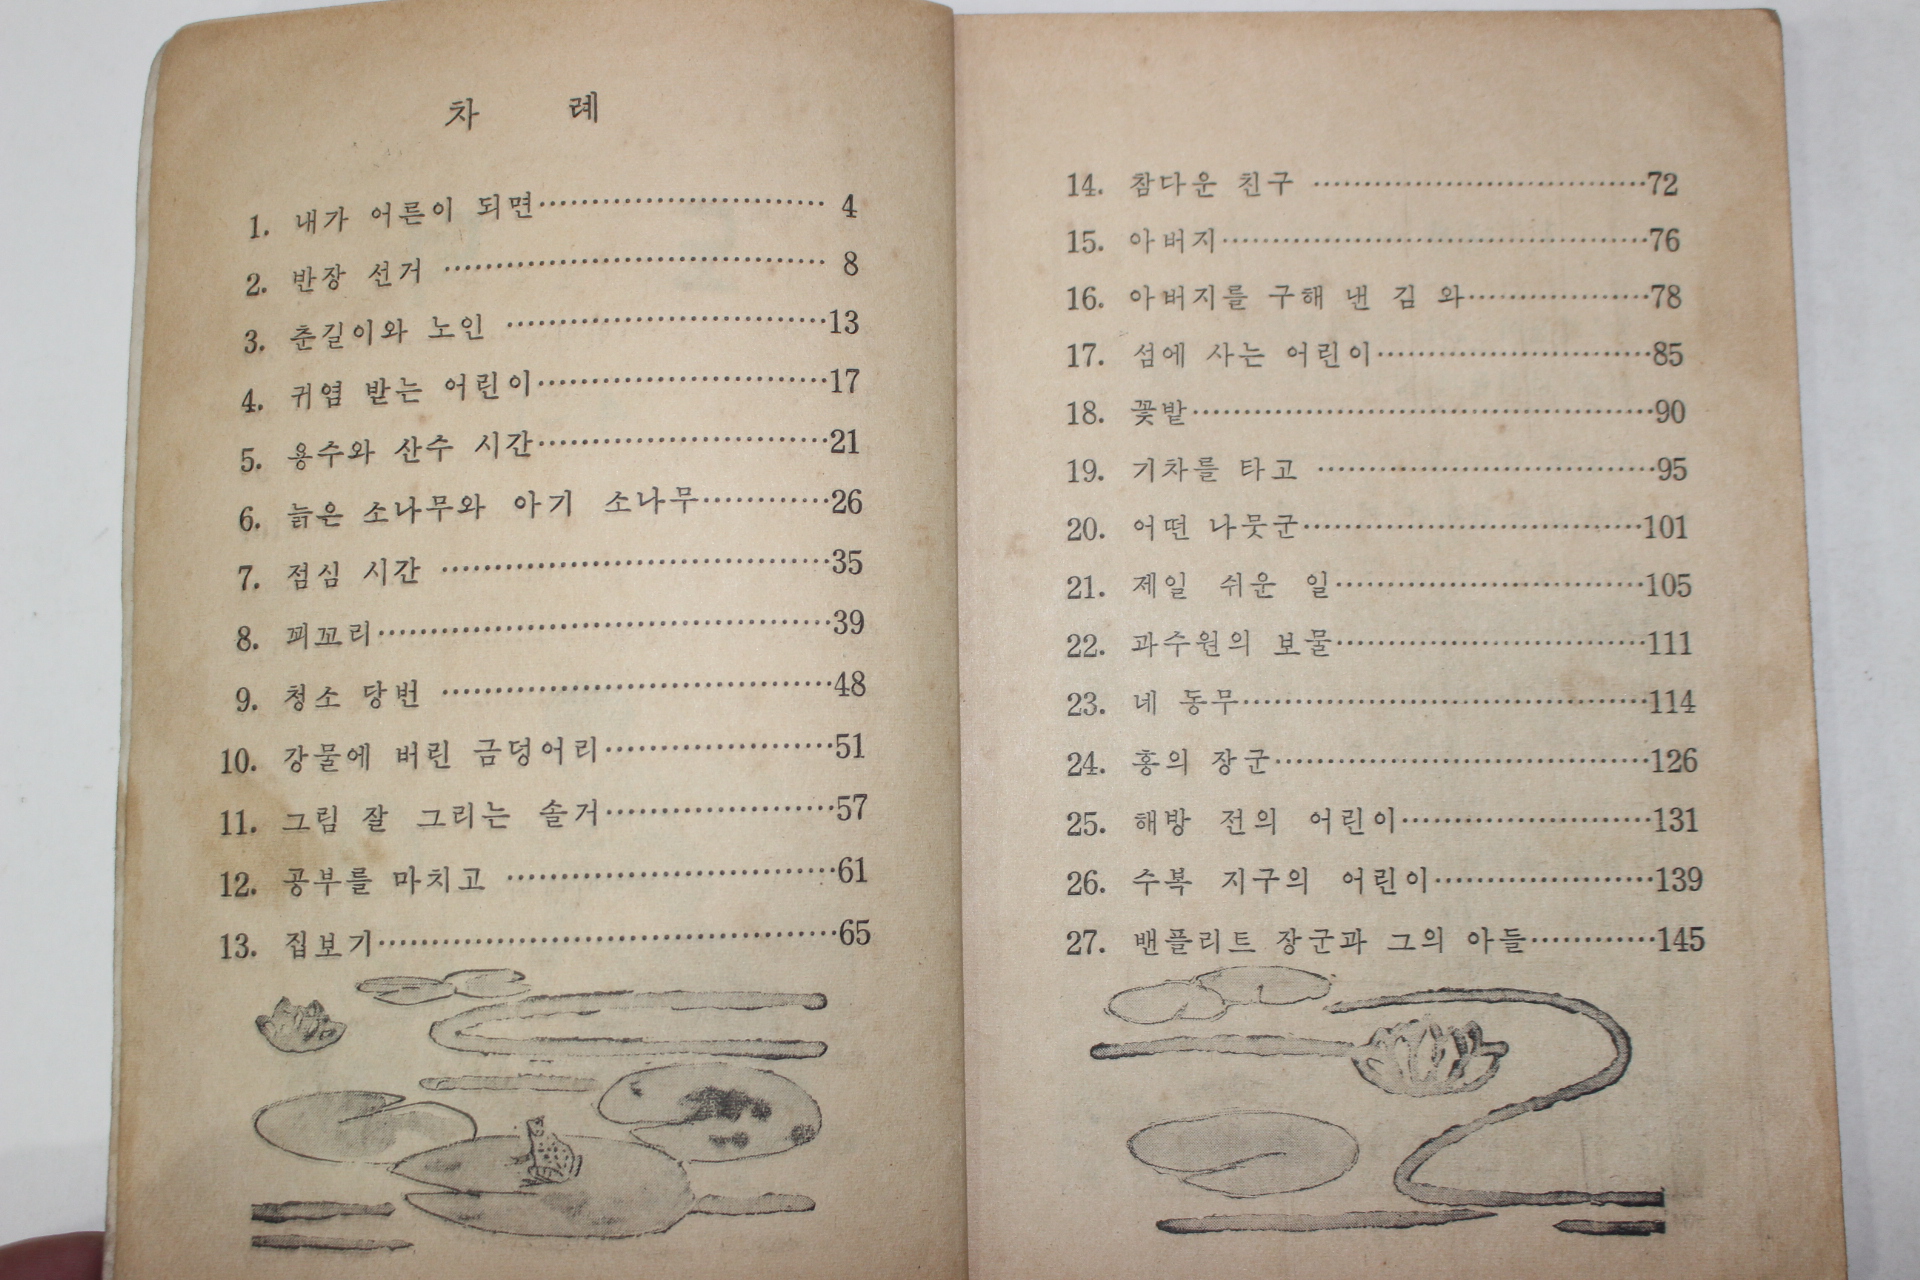 차 례
1. 내가 어른이 되면………………………… 4
2. 반장 선거 ………………………………… 8
3. 춘길이와 노인 ……………………………13
4. 귀염 받는 어린이…………………………17
5. 용수와 산수 시간…………………………21
6. 늙은 소나무와 아기 소나무…………26
7. 점심 시간 …………………………………35
8. 꾀꼬리………………………………………39
9. 청소 당번 …………………………………48
10. 강물에 버린 금덩어리……………………51
11. 그림 잘 그리는 솔거……………………57
12. 공부를 마치고 ……………………………61
13. 집보기………………………………………65
14. 참다운 친구 ……………………………72
15. 아버지……………………………………76
16. 아버지를 구해 낸 김 와………………78
17. 섬에 사는 어린이………………………85
18. 꽃밭………………………………………90
19. 기차를 타고 ……………………………95
20. 어떤 나뭇군……………………………101
21. 제일 쉬운 일…………………………105
22. 과수원의 보물…………………………111
23. 네 동무…………………………………114
24. 홍의 장군………………………………126
25. 해방 전의 어린이……………………131
26. 수복 지구의 어린이…………………139
27. 밴플리트 장군과 그의 아들…………145